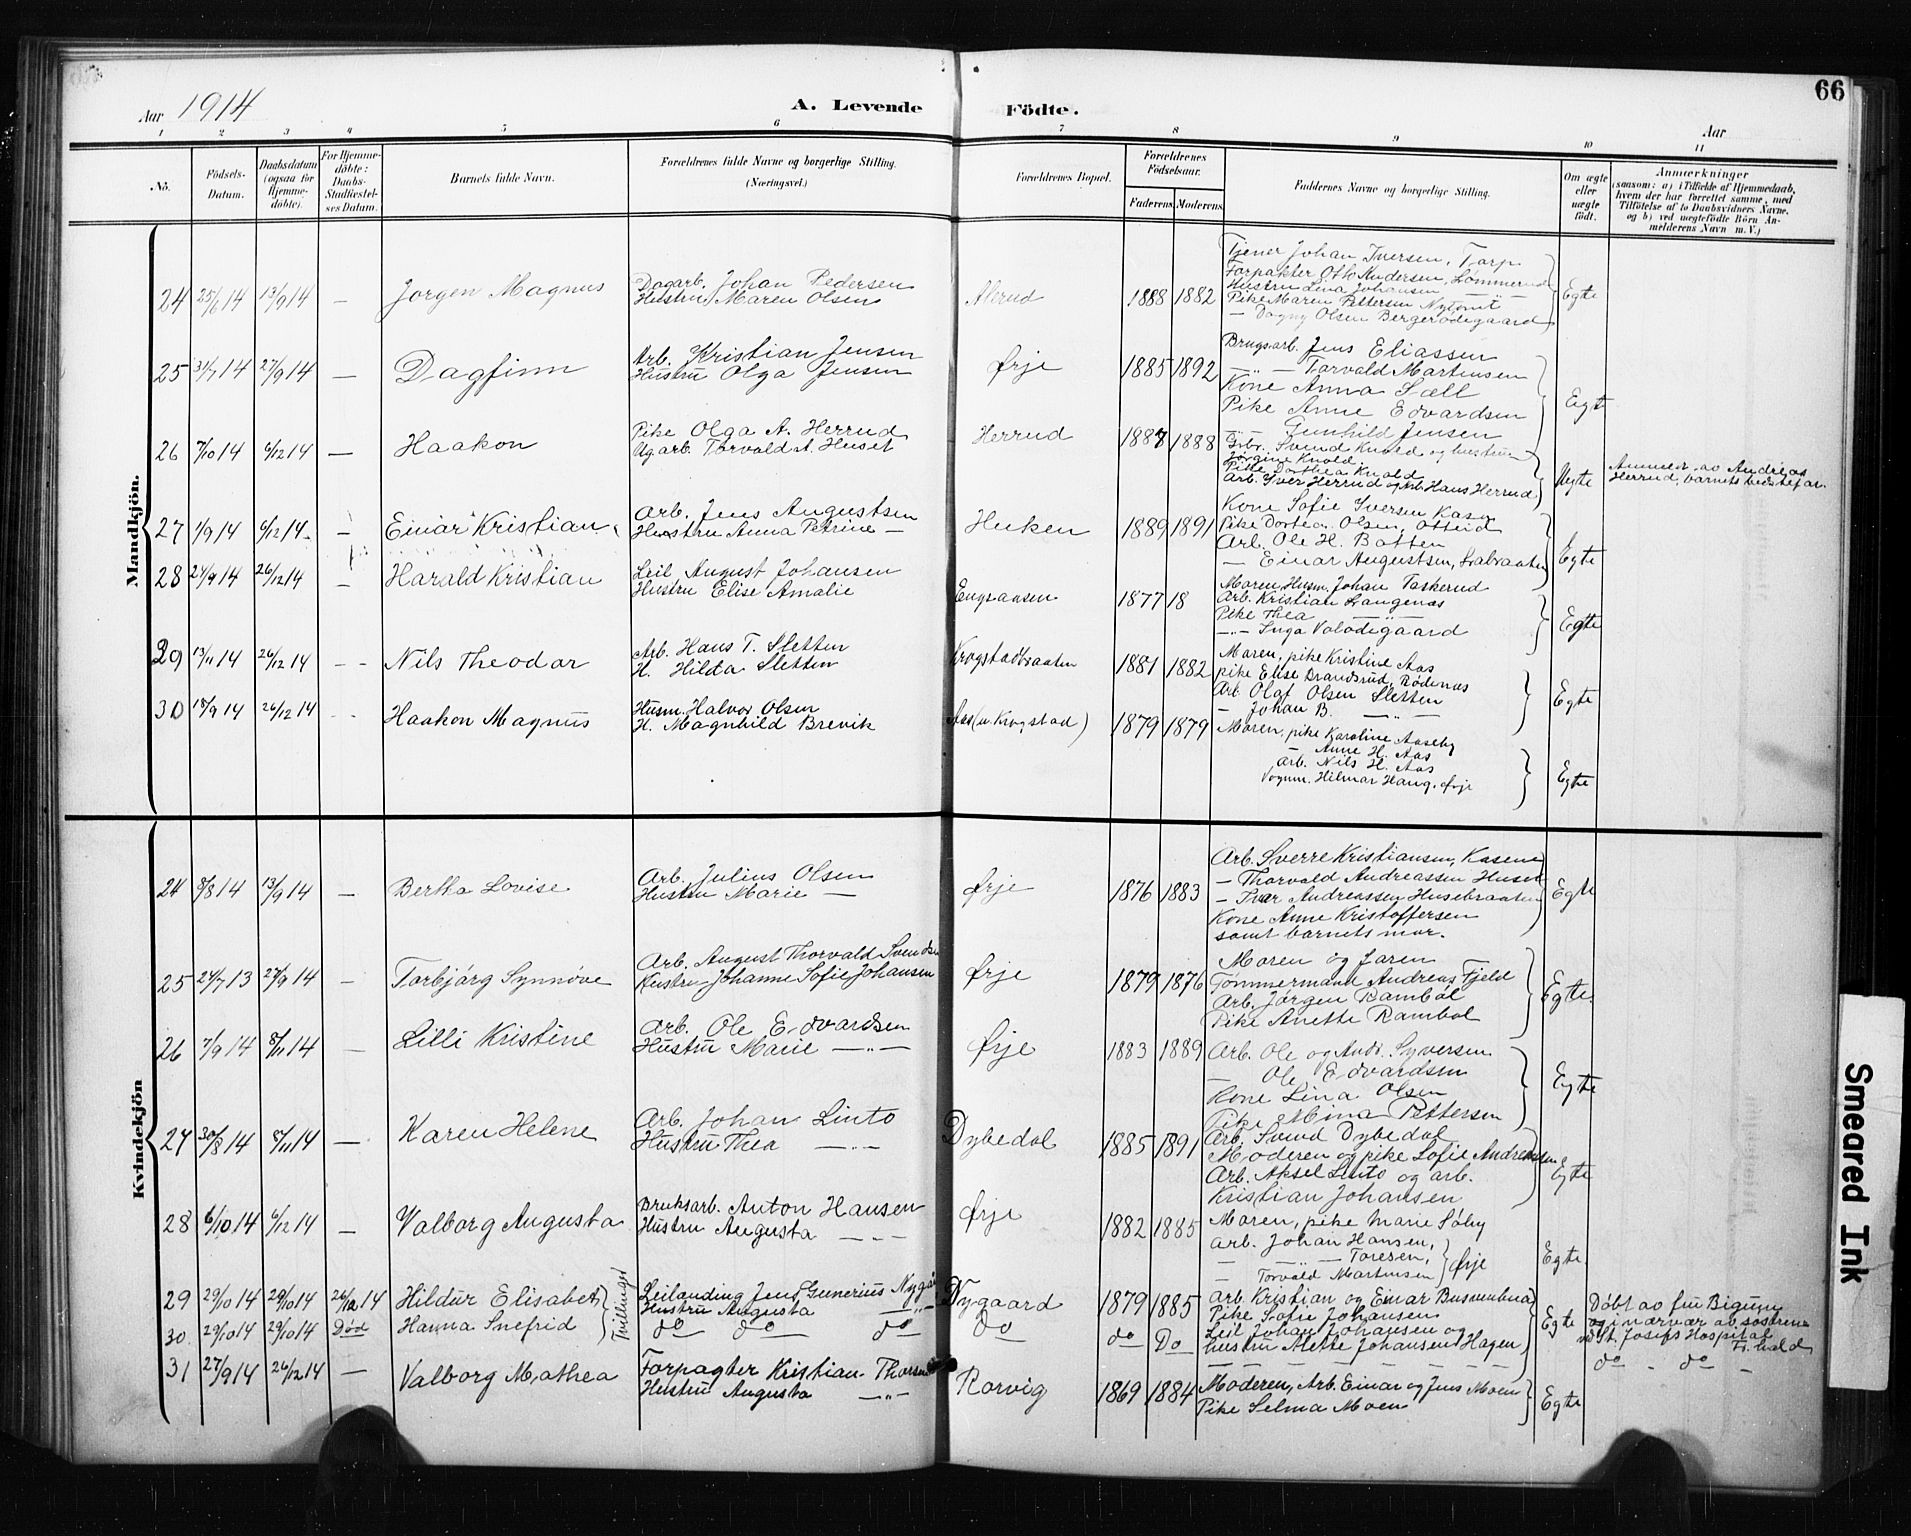 66
Aar 1914
A. Levende Födte.
Aar
1 2 3 4 5 6 7 8 9 10 11
No.
Födsels-Datum.
Daabsdatum (ogsaa for Hjemme-döbte).
For Hjemme-döbte: Daabs-Stadfæstel-ses Datum.
Barnets fulde Navn.
Forældrenes fulde Navne og borgerlige Stilling.
(Næringsvei.)
Forældrenes Bopæl.
Forældrenes Födselsaar.
Faderens Moderens
Faddernes Navne og borgerlige Stilling.
Om ægte eller uægte födt.
Anmærkninger
(saasom: a) i Tilfælde af Hjemmedaab,
hvem der har forrettet samme, med
Tilföielse af to Daabsvidners Navne,
og b) ved uægtefödte Börn An-
melderens Navn m. V.)
Mandkjön.
24 25/6 14 13/9 14 — Jørgen Magnus
Dagarb. Johan Pedersen
Hustru Maren Olsen
1888 1882
Tjener Johan Iversen, Torp
Forpakter Otto Andersen, Lømmerud
Hustru Lina Johansen — " —
Pike Maren Pettersen
— Dagny Olsen Bergerødegaard
Egte
25 31/7 14 27/9 14 — Dagfinn
Arb. Kristian Jensen
Hustru Olga Jensen
Ørje 1885 1892
Brugsarb. Jens Eliassen
— " — Torvald Martinsen
Kone Anna Sæll
Pike Anne Edvardsen
— " — Gunhild Jensen
Egte
26 7/10 14 6/12 14 — Haakon
Pike Olga A. Herrud
Ug. arb. Torvald A. Huset
Herrud 1887 1888
Grbr. Svend Knold og hustru
Jørgine Knold.
Pike Dorthea Knold
Arb. Iver Herrud og Arb. Hans Herrud
Uegte
Anmeldt av Andreas
Herrud, barnets bestefar.
27 1/9 14 6/12 14 — Einar Kristian
Arb. Jens Augustsen
Hustru Anna Petrine —
Heken 1889 1891
Kone Sofie Iversen Kasa
Pike Dortea Olsen, Otteid
Arb. Ole H. Batten
— Einar Augustsen,
Egte
28 24/9 14 26/12 14 — Harald Kristian
Leil August Johansen
Hustru Elise Amalie
1877 18
Moren, Husm. Johan Taskerud
Arb. Kristian Langenæs
Pike Thea — " —
— " — Inga Volødegaard
Egte
29 13/11 14 26/12 14 - - Nils Theodor
Arb. Hans T. Sletten
H. Hilda Sletten
Krogstadbraaten 1881 1882
Moren, pike Kristine Aas
pike Elise Brandsrud, Rødenæs
Arb. Olaf Olsen Sletten
— Johan B. — " —
Egte
30 18/9 14 26/12 14 - - Haakon Magnus
Husm. Halvor Olsen
H. Magnhild Brevik
Aas (u. Krogstad) 1879 1879
Moren, pike Karoline Aaseby
— Anne H. Aas
Arb. Nils H. Aas
Vognm. Hilmar Haug, Ørje
Egte
Kvindekjön
24 8/8 14 13/9 14 — Bertha Lovise
Arb. Julius Olsen
Hustru Marie —
Ørje 1876 1883
Arb. Sverre Kristiansen, Kasene
— Thorvald Andreassen Huset
— Ivar Andreassen Husebraaten
Kone Anne Kristoffersen
samt barnets mor.
Egte
25 24/7 13 27/9 14 — Torbjørg Synnøve
Arb. August Thorvald Svendsen
Hustru Johanne Sofie Johansen
Ørje 1879 1876
Moren og faren
Tømmermand Andreas Fjeld
Arb. Jørgen Rambøl
Pike Anette Rambøl
Egte.
26 7/9 14 8/11 14 — Lilli Kristine
Arb. Ole Edvardsen
Hustru Marie — " —
Ørje 1883 1889
Arb. Ole og Andr. Syversen
— Ole Edvardsen
Kone Lina Olsen
Pike Mina Pettersen
Egte
27 30/8 14 8/11 14 — Karen Helene
Arb. Johan Linto
Hustru Thea — " —
Dybedal 1885 1891
Arb. Svend Dybedal
Moderen og pike Sofie Andreassen
Arb. Aksel Linto og arb.
Kristian Johansen
Egte
28 6/10 14 6/12 14 — Valborg Augusta
Bruksarb. Anton Hansen
Hustru Augusta — " —
Ørje 1882 1885
Moren, pike Marie Søby
Arb. Johan Hansen,
— " — Toresen,
— Torvald Martinsen } Ørje
Egte
29 29/10 14 29/10 14 26/12 14 Hildur Elisabet
Tvillinger
Leilænding Jens Gunerius Nygaard
Hustru Augusta — " —
Nygaard 1879 1885
Arb. Kristian og Einar
Pike Sofie Johansen
Egte
Døbt av fru Bigum
og i nærvær av søstrene
ved St. Josefs Hospital
Fr.hald
30. 29/10 14 29/10 14 Død Hanna Snefrid
do do do
do do Do
Leil Johan Johansen og
hustru Alette Johansen Hagen
do - do -
31 27/9 14 26/12 14 — Valborg Mathea
Forpagter Kristian
Hustru Augusta — " —
Rørvig 1869 1884
Moderen, Arb. Einar og Jens Moen
Pike Selma Moen
Egte
Smeared Ink